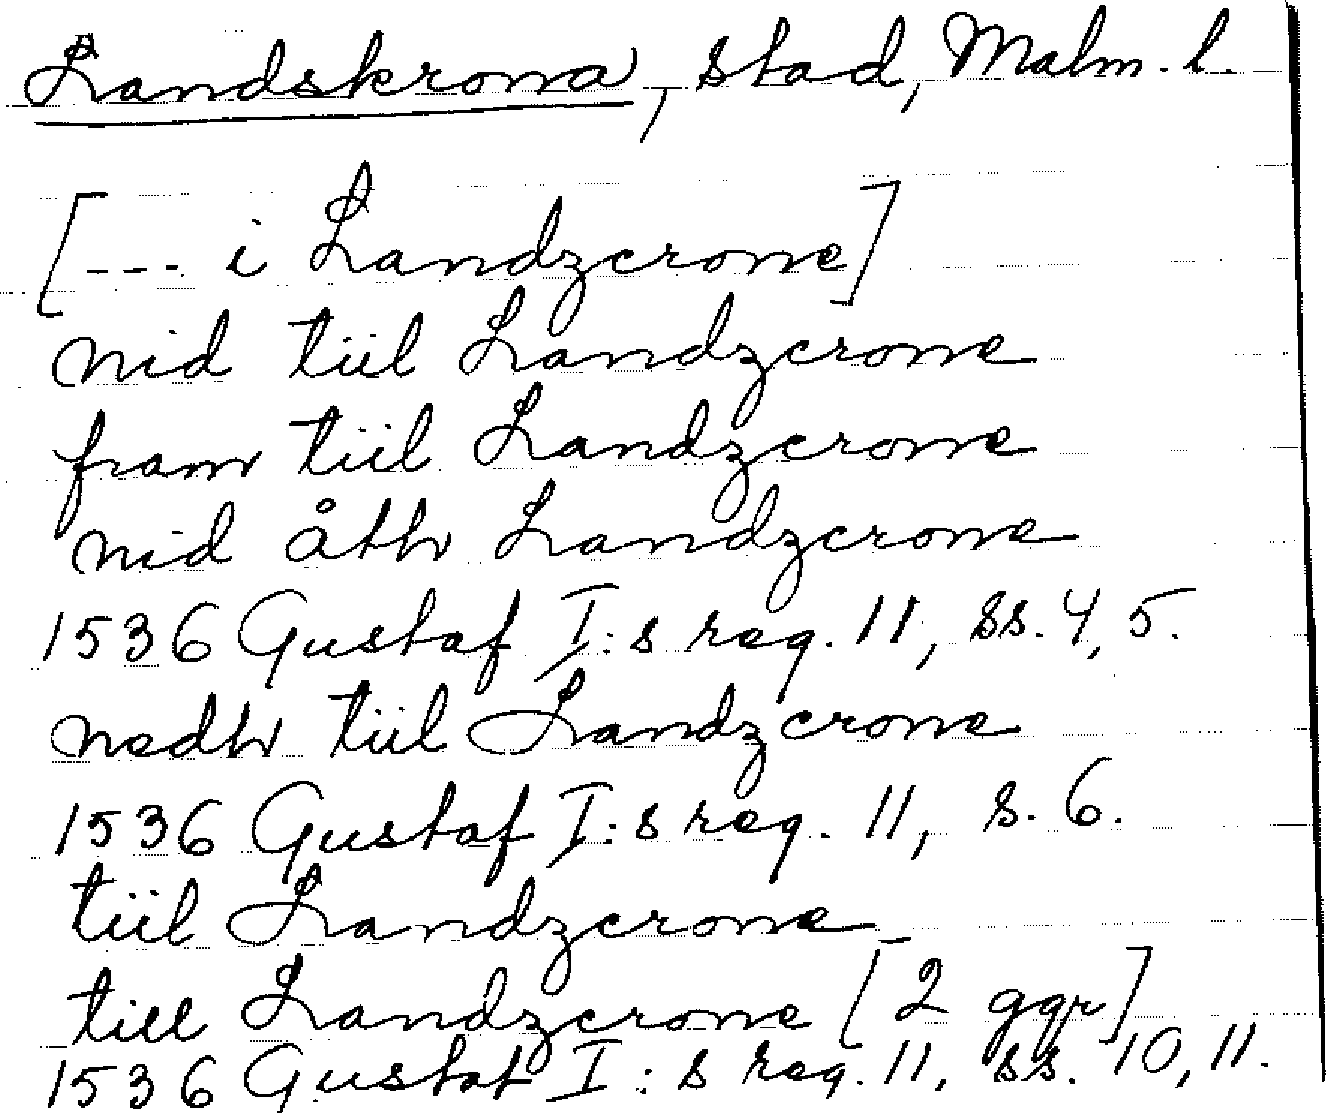 Landskrona, stad, Malm. l.
[--- i Landzcrone]
nid tiil Landzcrone
fram tiil Landzcrone
nid åth Landzcrone
1536 Gustaf I:s reg. 11, ss. 4, 5.
nedh tiil Landzcrone
1536 Gustaf I:s reg. 11, s. 6.
tiil Landzcrone
till Landzcrone [2 ggr]
1536 Gustaf I:s reg. 11, ss. 10, 11.